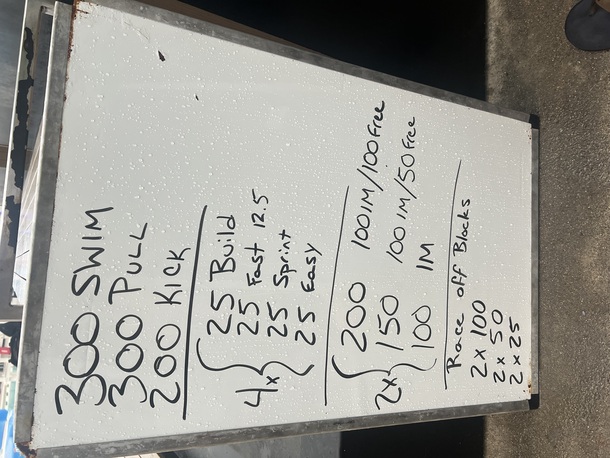 300 SWIM
300 PULL
200 KICK
4x { 25 Build
25 Fast 12.5
25 Sprint
25 Easy
2x { 200 100IM/100Free
150 100IM/50Free
100 IM
Race off Blocks
2 x 100
2 x 50
2 x 25